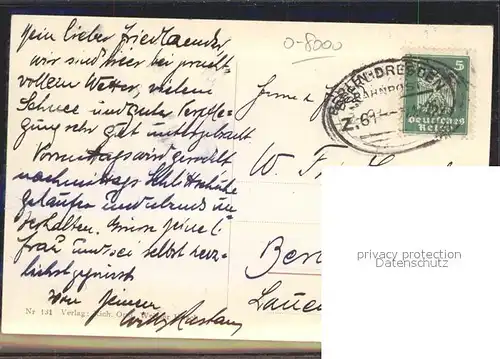 Mein lieber Friedlaender,
wir sind hier bei pracht-
vollem Wetter, vielem
Schnee und guter Verpfle-
gung sehr gut untergebracht
Vormittags wird gerodelt
nachmittags Schlittschuhe
gelaufen und abends un-
terhalten. Grüsse Deine l.
Frau und sei selbst herz-
lichst gegrüsst
von Deinem
Willy
Nr 131 Verlag: Rich.
0-8000
BERLIN-DRESDEN
BAHNPOST
Z.61
5
Deutsches
Reich
Herrn
W.
Ber
Lauen
privacy protection
Datenschutz